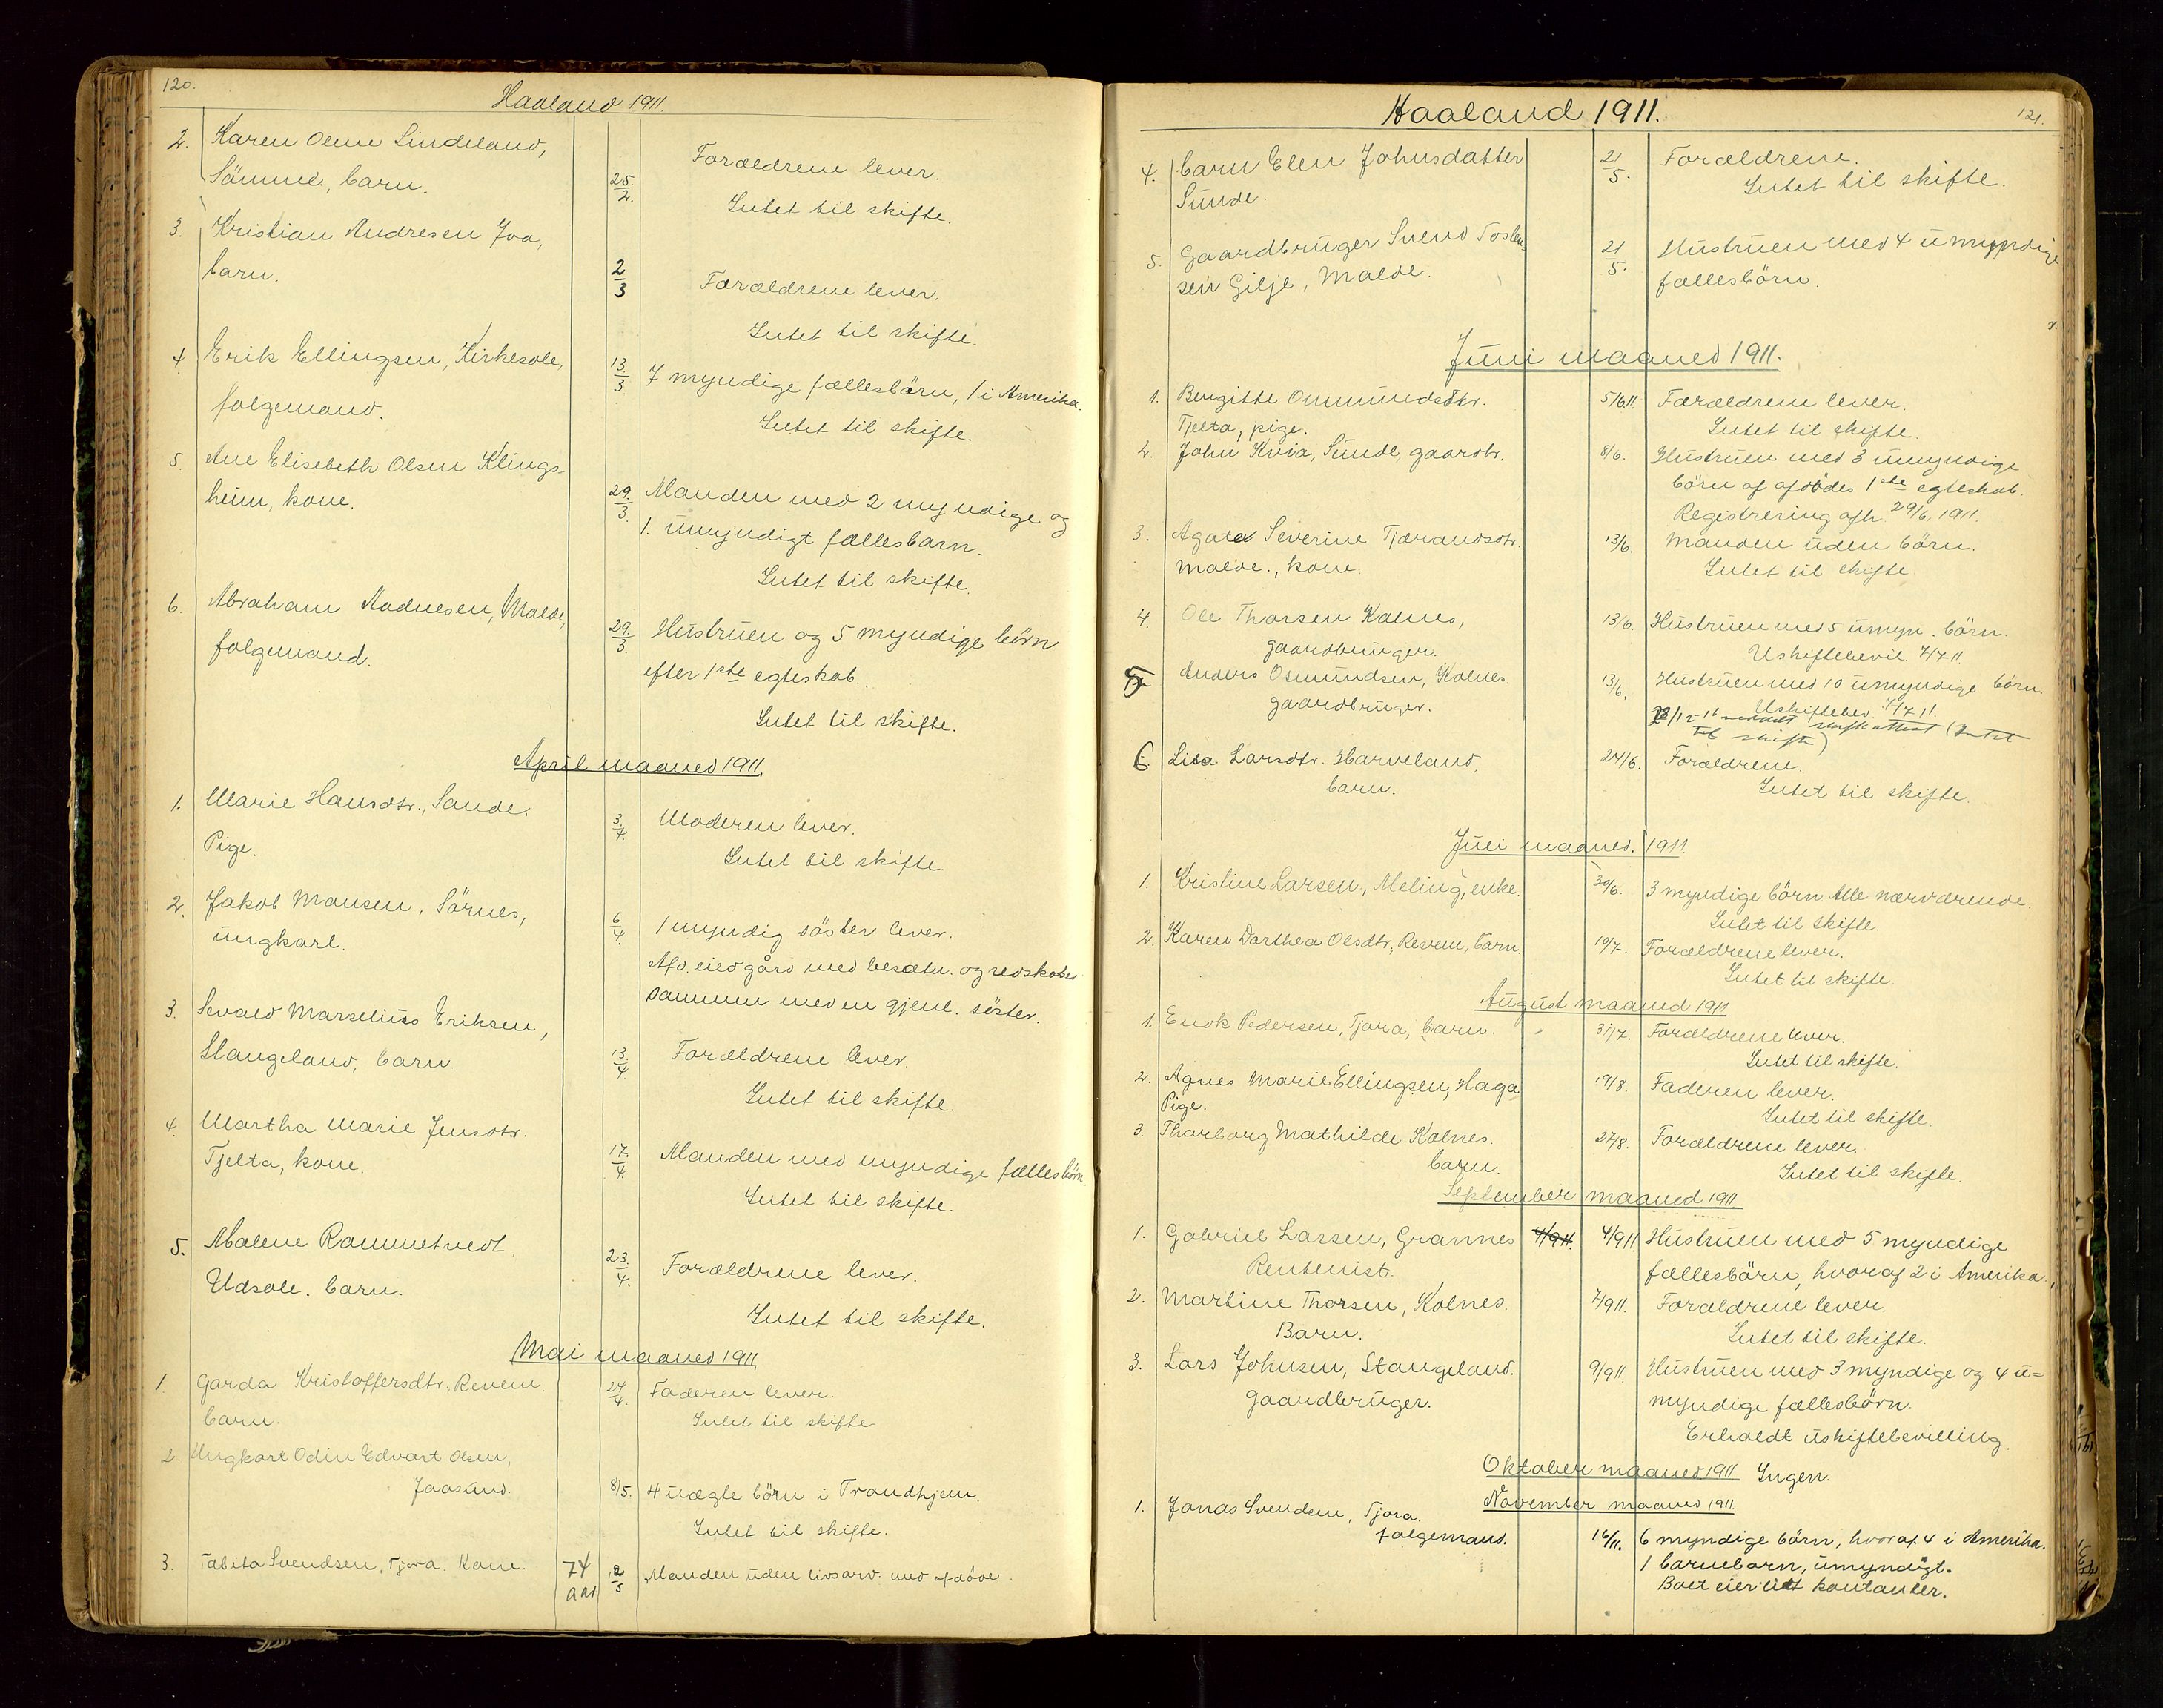 120.
Haaland 1911.
2. Karen Olene Lindeland,
Sömme, barn.
25/2. Forældrene lever.
Intet til skifte.
3. Kristian Andresen Joa,
barn.
2/3 Forældrene lever.
Intet til skifte.
4. Erik Ellingsen, Kirkesole,
folgemand.
13/3. 7 myndige fællesbörn, 1 i Amerika.
Intet til skifte.
5. Ane Elisebeth Olsen Klings-
heim, kone.
29/3. Manden med 2 myndige og
1. umyndigt fællesbarn.
Intet til skifte.
6. Abraham Aadnesen, Malde,
folgemand.
29/3. Hustruen og 5 myndige börn
efter 1ste egteskab.
Intet til skifte.
April maaned 1911.
1. Marie Hansdtr., Sande.
Pige.
3/4. Moderen lever.
Intet til skifte
2. Jakob Monsen, Sörnes,
ungkarl.
6/4. 1 myndig söster lever.
Afd. eied gård med besætn. og redskaber
sammen med en gjenl. söster.
3. Sevald Marselius Eriksen,
Stangeland, barn.
13/4. Forældrene lever.
Intet til skifte.
4. Martha Marie Jensdtr.
Tjelta, kone.
17/4. Manden med myndige fællesbörn.
Intet til skifte.
5. Malene Rommetvedt,
Udsole. barn.
23/4. Forældrene lever.
Intet til skifte.
Mai maaned 1911.
1. Garda Kristoffersdtr. Revem
barn.
24/4. Faderen lever.
Intet til skifte
2. Ungkarl Odin Edvart Olsen,
Jaasund.
8/5. 4 uægte börn i Trondhjem.
Intet til skifte.
3. Tabita Svendsen, Tjora. Kone. 74
aar
12/5 Manden uden livsarv. med afdöde.
Haaland 1911.
121.
4. barn Elen Johnsdatter
Sunde.
21/5. Forældrene.
Intet til skifte.
5. Gaardbruger Svend Tosten-
sen Gilje, Malde.
21/5. Hustruen med 4 umyndige
fællesbörn.
Juni maaned 1911.
1. Bergitte Ommundsdtr.
Tjelta, pige.
5/6 11. Forældrene lever.
Intet til skifte.
2. John Kvia, Sunde, gaardbr.
8/6. Hustruen med 3 umyndige
börn af afdödes 1ste egteskab.
Registrering afh. 29/6. 1911.
3. Agate Severine Tjerandsdtr.
Malde., kone.
13/6. Manden uden börn.
Intet til skifte.
4. Ole Thorsen Kolnes,
gaardbruger.
13/6. Hustruen med 5 umyn. börn.
Uskiftebevil. 7/7 11.
5 Anders Osmundsen, Kolnes.
gaardbruger.
13/6. Hustruen med 10 umyndige börn.
Uskiftebev. 7/7 11.
meddelt skifteattest (Intet
til skifte)
6 Lisa Larsdtr. Harveland,
barn.
24/6. Forældrene.
Intet til skifte.
Juli maaned. 1911.
1. Kristine Larsen, Meling, enke.
30/6. 3 myndige börn. Alle nærværende.
Intet til skifte.
2. Karen Dorthea Olsdtr, Revem, barn.
10/7. Forældrene lever.
Intet til skifte.
August maaned 1911
1. Enok Pedersen, Tjora, barn.
31/7. Forældrene lever.
Intet til skifte.
2. Agnes Marie Ellingsen, Haga
Pige.
19/8. Faderen lever.
Intet til skifte.
3. Thorborg Mathilde Kolnes.
barn.
27/8. Forældrene lever.
Intet til skifte.
September maaned 1911.
1. Gabriel Larsen, Grannes
Rentenist.
4/9 11. 4/9 11. Hustruen med 5 myndige
fællesbörn, hvoraf 2 i Amerika.
2. Martine Thorsen, Kolnes.
Barn.
7/9 11. Forældrene lever.
Intet til skifte.
3. Lars Johnsen, Stangeland.
gaardbruger.
9/9 11. Hustruen med 3 myndige og 4 u=
myndige fællesbörn.
Erholdt uskiftebevilling.
Oktober maaned 1911 Ingen.
November maaned 1911.
1. Jonas Svendsen, Tjora.
folgemand.
16/11. 6 myndige börn, hvoraf 4 i Amerika.
1 barnebarn, umyndigt.
Boet eier lidt kontanter.